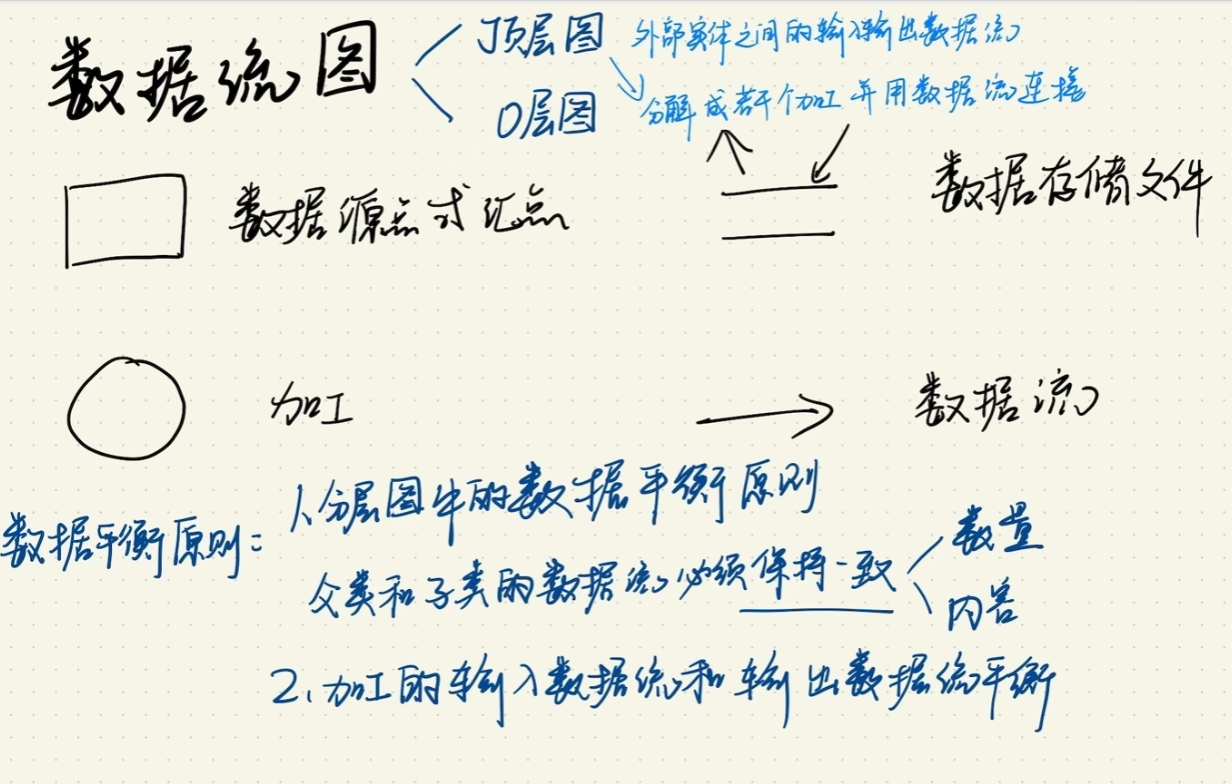 数据流图
顶层图 外部实体之间的输入输出数据流
0层图 分解成若干个加工并用数据流连接
数据源点或汇点
数据存储文件
加工
数据流
数据平衡原则：
1、分层图中的数据平衡原则
父类和子类的数据流必须保持一致
数量
内容
2、加工的输入数据流和输出数据流平衡